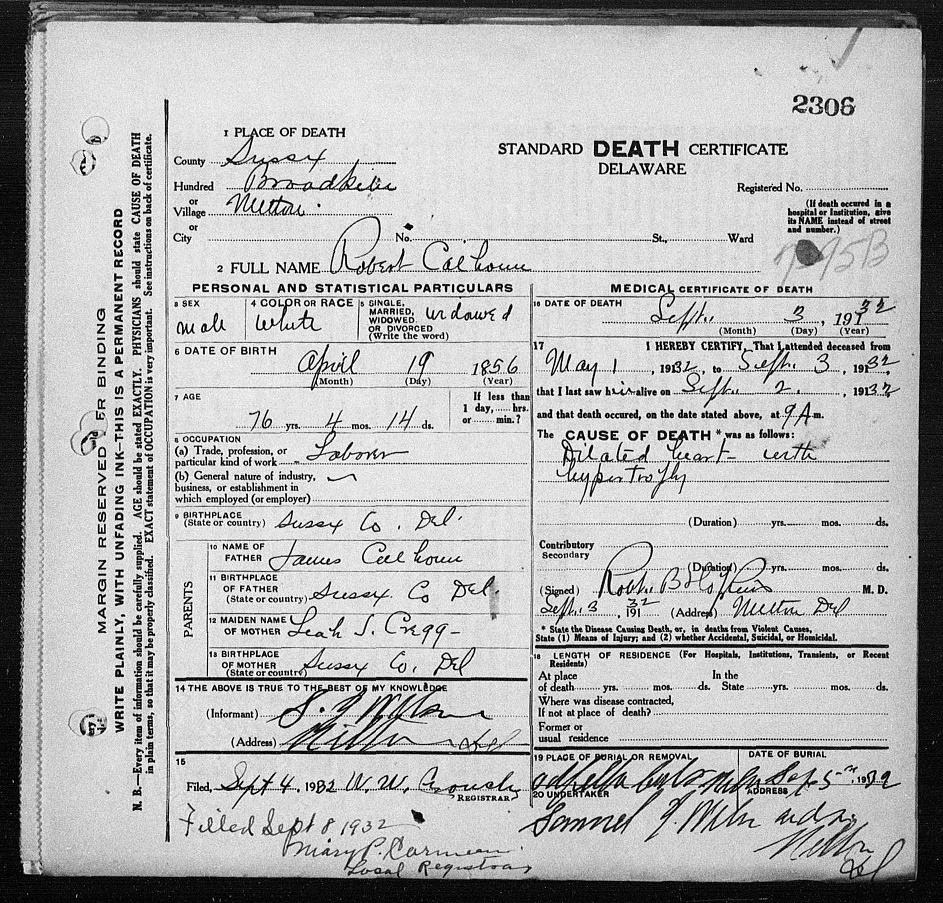 2306
1 PLACE OF DEATH
STANDARD DEATH CERTIFICATE
DELAWARE
County Sussex
Hundred Broadkiln
or
Village Milton
or
City No. St., Ward
Registered No.
(If death occured in a
hospital or Institution, give
its NAME instead of street
and number.)
95B
2 FULL NAME Robert Calhoun
PERSONAL AND STATISTICAL PARTICULARS
3 SEX
male
4 COLOR OR RACE
White
5 SINGLE,
MARRIED,
WIDOWED
OR DIVORCED
(Write the word)
widowed
6 DATE OF BIRTH
April 19 1856
(Month) (Day) (Year)
7 AGE
76 yrs. 4 mos. 14 ds.
If less than
1 day, hrs.
or min.?
8 OCCUPATION
(a) Trade, profession, or
particular kind of work Laborer
(b) General nature of industry,
business, or establishment in
which employed (or employer)
9 BIRTHPLACE
(State or country) Sussex Co. Del.
PARENTS
10 NAME OF
FATHER James Calhoun
11 BIRTHPLACE
OF FATHER
(State or country) Sussex Co Del.
12 MAIDEN NAME
OF MOTHER Leah S. Cregg
13 BIRTHPLACE
OF MOTHER
(State or country) Sussex Co. Del
14 THE ABOVE IS TRUE TO THE BEST OF MY KNOWLEDGE
(Informant) S. J. Wilson
(Address) Milton Del
15
Filed, Sept 4, 1932 W. W. Crouch
REGISTRAR
Filled Sept 8 1932
Mary P. Carmean
Local Registrar
MEDICAL CERTIFICATE OF DEATH
16 DATE OF DEATH
Sept. 3, 1932
(Month) (Day) (Year)
17 I HEREBY CERTIFY, That I attended deceased from
May 1, 1932, to Sept. 3, 1932
that I last saw him alive on Sept. 2, 1932
and that death occured, on the date stated above, at 9 A m.
The CAUSE OF DEATH * was as follows:
Dilated heart - with
hypertrofly
(Duration) yrs. mos. ds.
Contributory
Secondary
(Duration) yrs. mos. ds.
(Signed) Robt. B Hopkins M. D.
Sept. 3, 1932 (Address) Milton Del
* State the Disease Causing Death, or, in deaths from Violent Causes,
State (1) Means of Injury; and (2) whether Accidental, Suicidal, or Homicidal.
18 LENGTH OF RESIDENCE (For Hospitals, Institutions, Transients, or Recent
Residents)
At place In the
of death yrs. mos. ds. State yrs. mos. ds.
Where was disease contracted,
If not at place of death?
Former or
usual residence
19 PLACE OF BURIAL OR REMOVAL
DATE OF BURIAL
Sept 5th, 1932
20 UNDERTAKER
ADDRESS
Samuel J. Wilson
Milton
Del
MARGIN RESERVED FOR BINDING
WRITE PLAINLY, WITH UNFADING INK—THIS IS A PERMANENT RECORD
N. B.—Every item of information should be carefully supplied. AGE should be stated EXACTLY. PHYSICIANS should state CAUSE OF DEATH
in plain terms, so that it may be properly classified. EXACT statement of OCCUPATION is very important. See instructions on back of certificate.